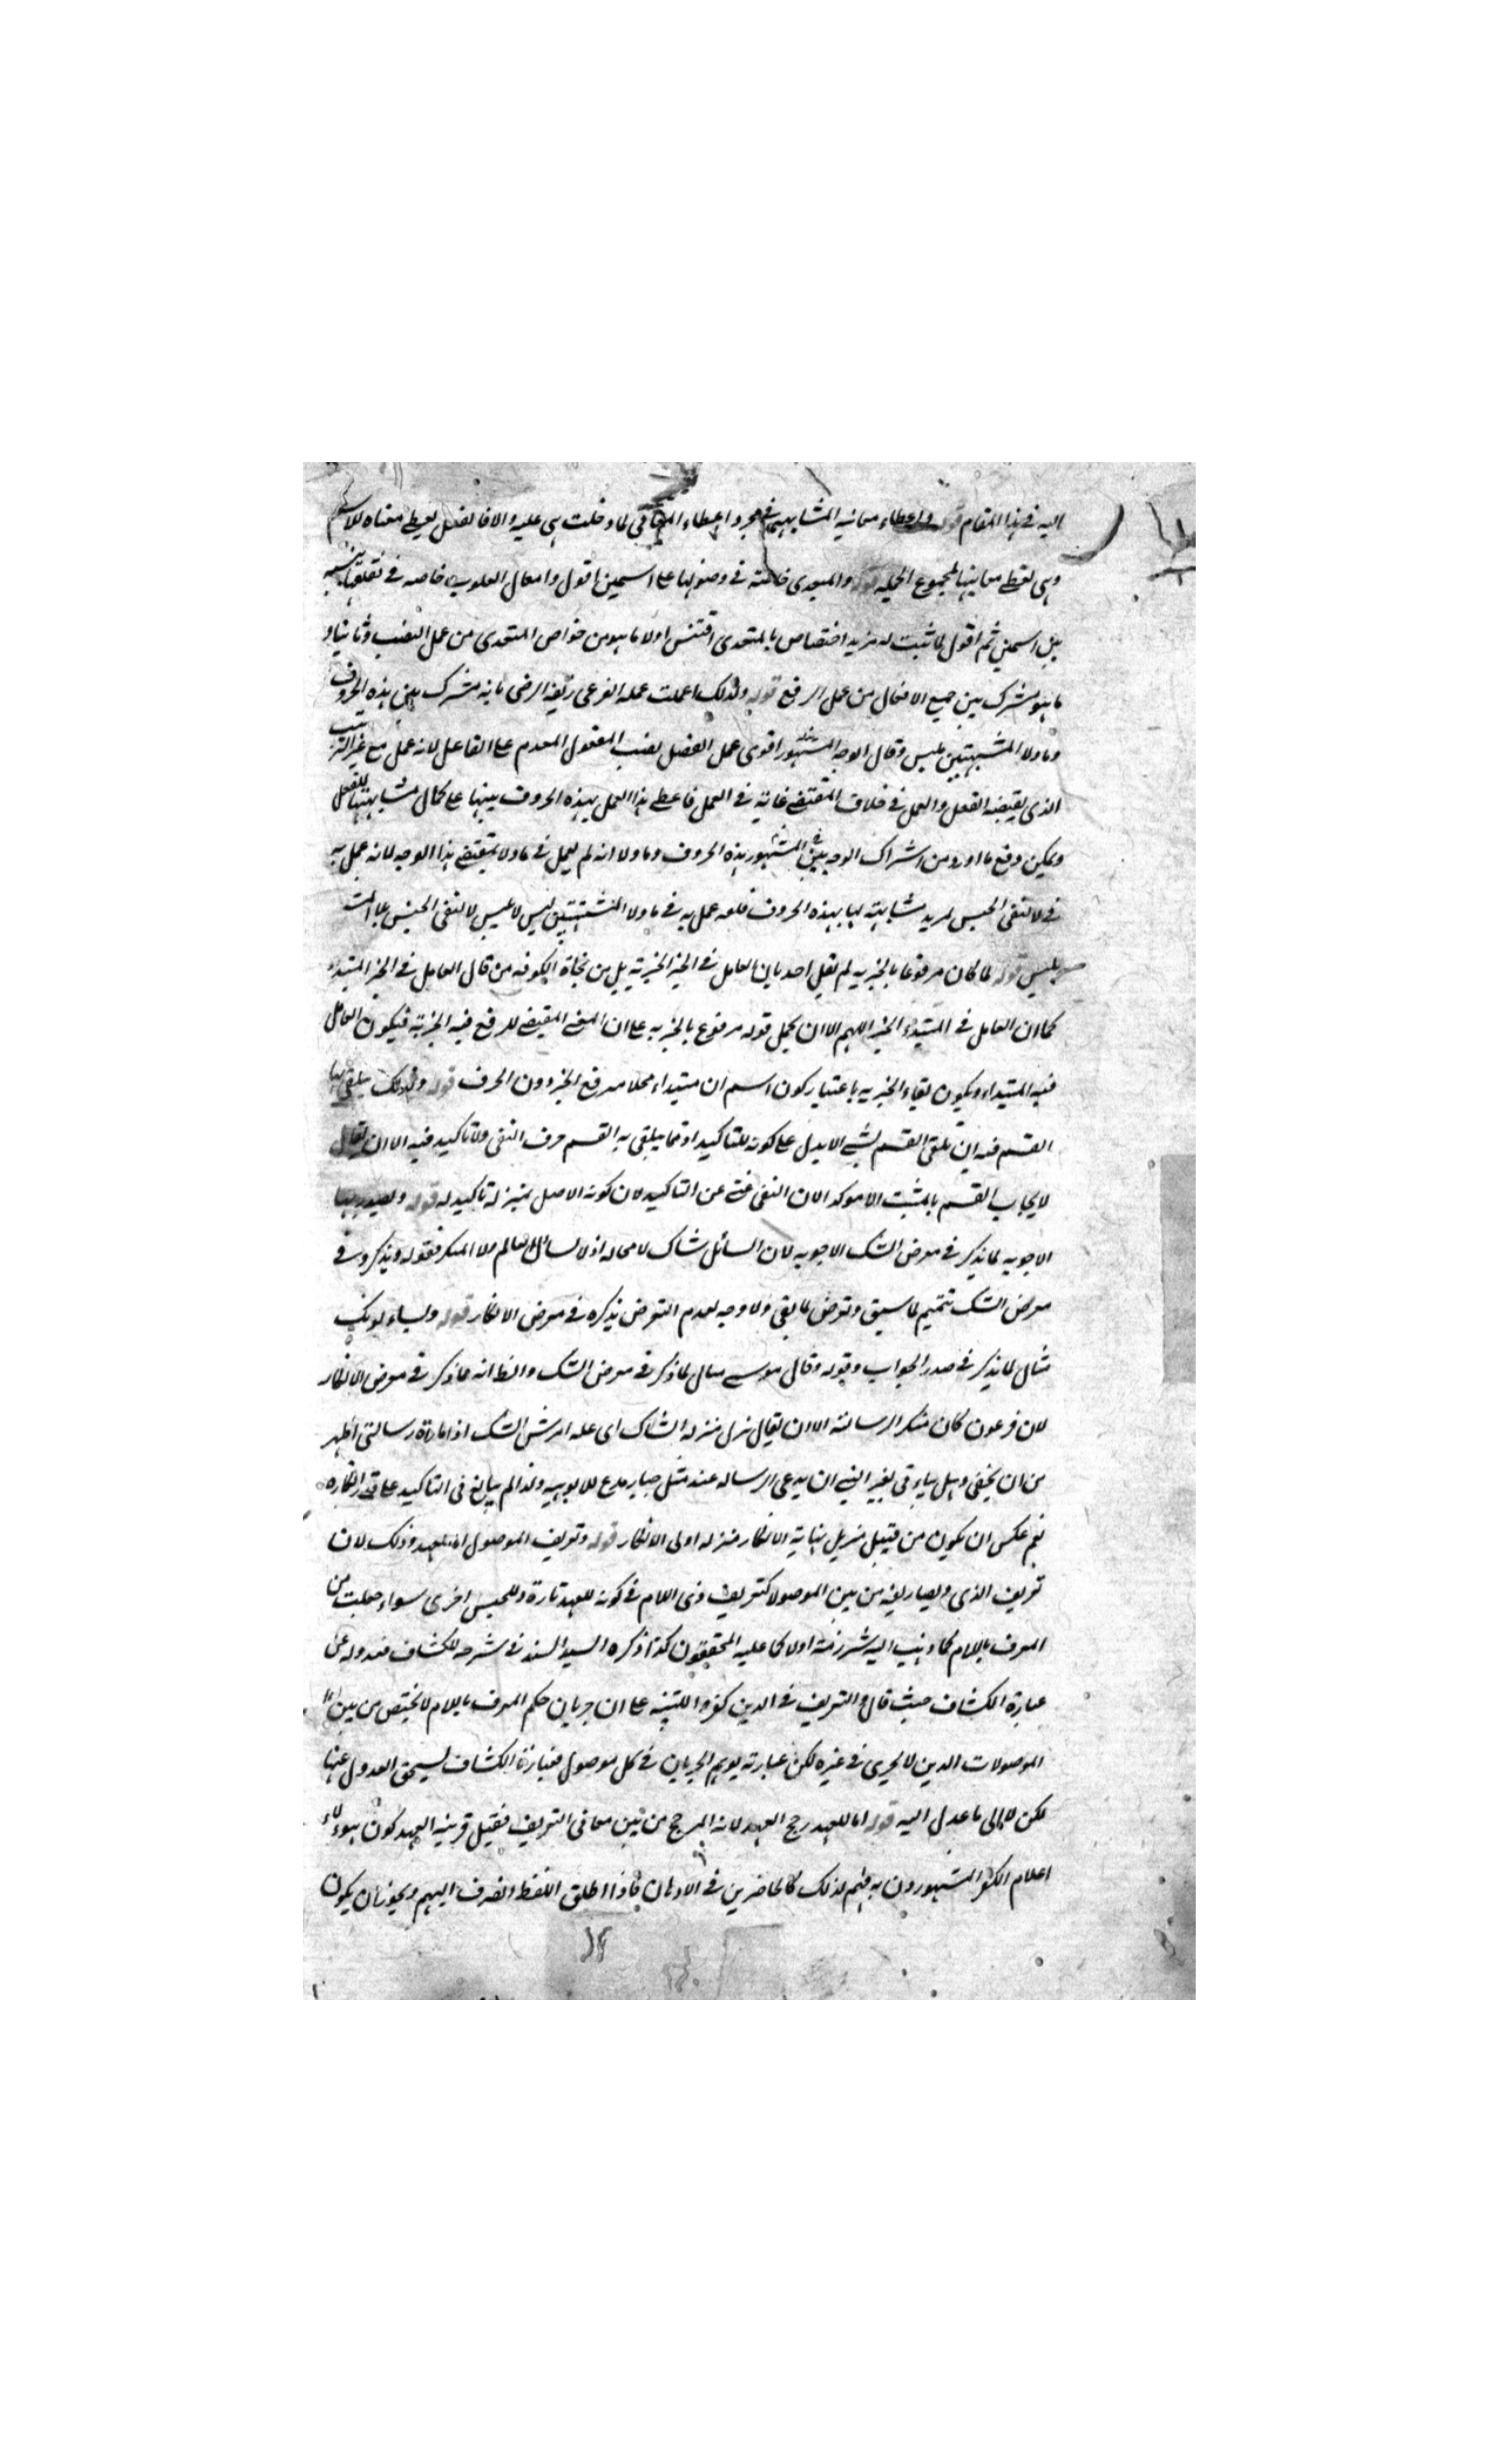 اليه في هذا المقام قوله واعطاء معانيه المشابهة في مجرد اعطاء المعاني لما دخلت هي عليه والا فالفعل يعطي معناه للاسم
وهي تعطي معانيها لمجموع الجملة قوله والمتعدي خاصة في دخولها على اسمين اقول وافعال القلوب خاصة في تعلقها بنسبة
بين اسمين ثم اقول لما ثبت له مزيد اختصاص بالمتعدي اقتبس اولا ما هو من خواص المتعدي من عمل النصب وثانيا
ما هو مشترك بين جميع الافعال من عمل الرفع قوله ولذلك اعملت عمله الفرعي زيفه الرضي بانه مشترك بين هذه الحروف
وما ولا المشبهتين بليس وقال الوجه المشهور اقوى عمل الفعل نصب المفعول المقدم على الفاعل لانه عمل مع غير الترتيب
الذي يقتضيه الفعل والعمل في خلاف المقتضى غاية في العمل فاعطي هذا العمل بهذه الحروف تنبيها على كمال مشابهتها للفعل
ويمكن دفع ما اورد من اشتراك الوجه بين المشهور في هذه الحروف وما ولا انه لم يعمل في ما ولا بمقتضى هذا الوجه لانه عمل به
في لا لنفي الجنس لمزيد مشابهته لها بهذه الحروف فلو عمل به في ما ولا المشبهتين بليس لا لنفي الجنس بلا
بليس قوله لما كان مرفوعا بالخبرية لم يقل احد بان العامل في الخبر الخبرية بل من نحاة الكوفة من قال العامل في الخبر المبتداء
كما ان العامل في المبتداء الخبر اللهم الا ان يحمل قوله مرفوع بالخبرية على ان المعنى المقتضي للرفع فيه الخبرية فيكون العامل
فيه المبتداء ويكون بقاء الخبرية باعتبار كون اسم ان مبتداء محلا مرفع الخبر دون الحرف قوله ولذلك يتلقى بها
القسم فيه ان تلقي القسم بشيء لا يدل على كونه للتاكيد اذ مما يتلقى به القسم حرف النفي ولا تاكيد فيه الا ان يقال
لا يجاب القسم بالمثبت الا موكد الان النفي غني عن التاكيد لان كونه الاصل بمنزلة تاكيد له قوله ويصدر بها
الاجوبة لما يذكر في معرض الشك الاجوبة لان السائل شاك لا محالة اذ لا يسائل العالم ولا المنكر فقوله ويذكر في
معرض الشك تتميم لما سبق وتعرض لما بقي ولا وجه لعدم التعرض بذكره في معرض الانكار قوله ويساءلونك
مثال لما يذكر في صدر الجواب وقوله وقال موسى مثال لما ذكر في معرض الشك والظ انه مما ذكر في معرض الانكار
لان فرعون كان منكر الرسالة الا ان يقال نزل منزلة الشاك اذ امارة رسالتي اظهر
من ان يخفى وهل ان يدعي الرسالة عند مثل جبار مدع للالوهية ولذا لم يبالغ في التاكيد على انكاره
نعم عكس ان يكون من قبيل تنزيل نهاية الانكار منزلة اولى الانكار قوله وتعريف الموصول اما للعهد وذلك لان
تعريف الذي وتصاريفه من بين الموصولات كتعريف ذي اللام في كونه للعهد تارة وللجنس اخرى سواء جعلت من
المعرف باللام كما ذهب اليه شرذمة اولا كما عليه المحققون كذا ذكره السيد السند في شرحه للكشاف فعدوله عن
عبارة الكشاف حيث قال والتعريف في الذين كفروا للتنبيه على ان جريان حكم المعرف باللام لا يختص من بين
الموصولات الذين لا يجري في غيره لكن عبارته يوهم الجريان في كل موصول فعبارة الكشاف يستحق العدول عنها
لكن لا الى ما عدل اليه قوله اما للعهد رجح العهد لانه المرجح من بين معاني التعريف فقيل قرينة العهد كون هؤلاء
اعلام الكفر المشهورون به فهم لذلك كالحاضرين في الاذهان فاذا اطلق اللفظ انصرف اليهم ويجوز ان يكون